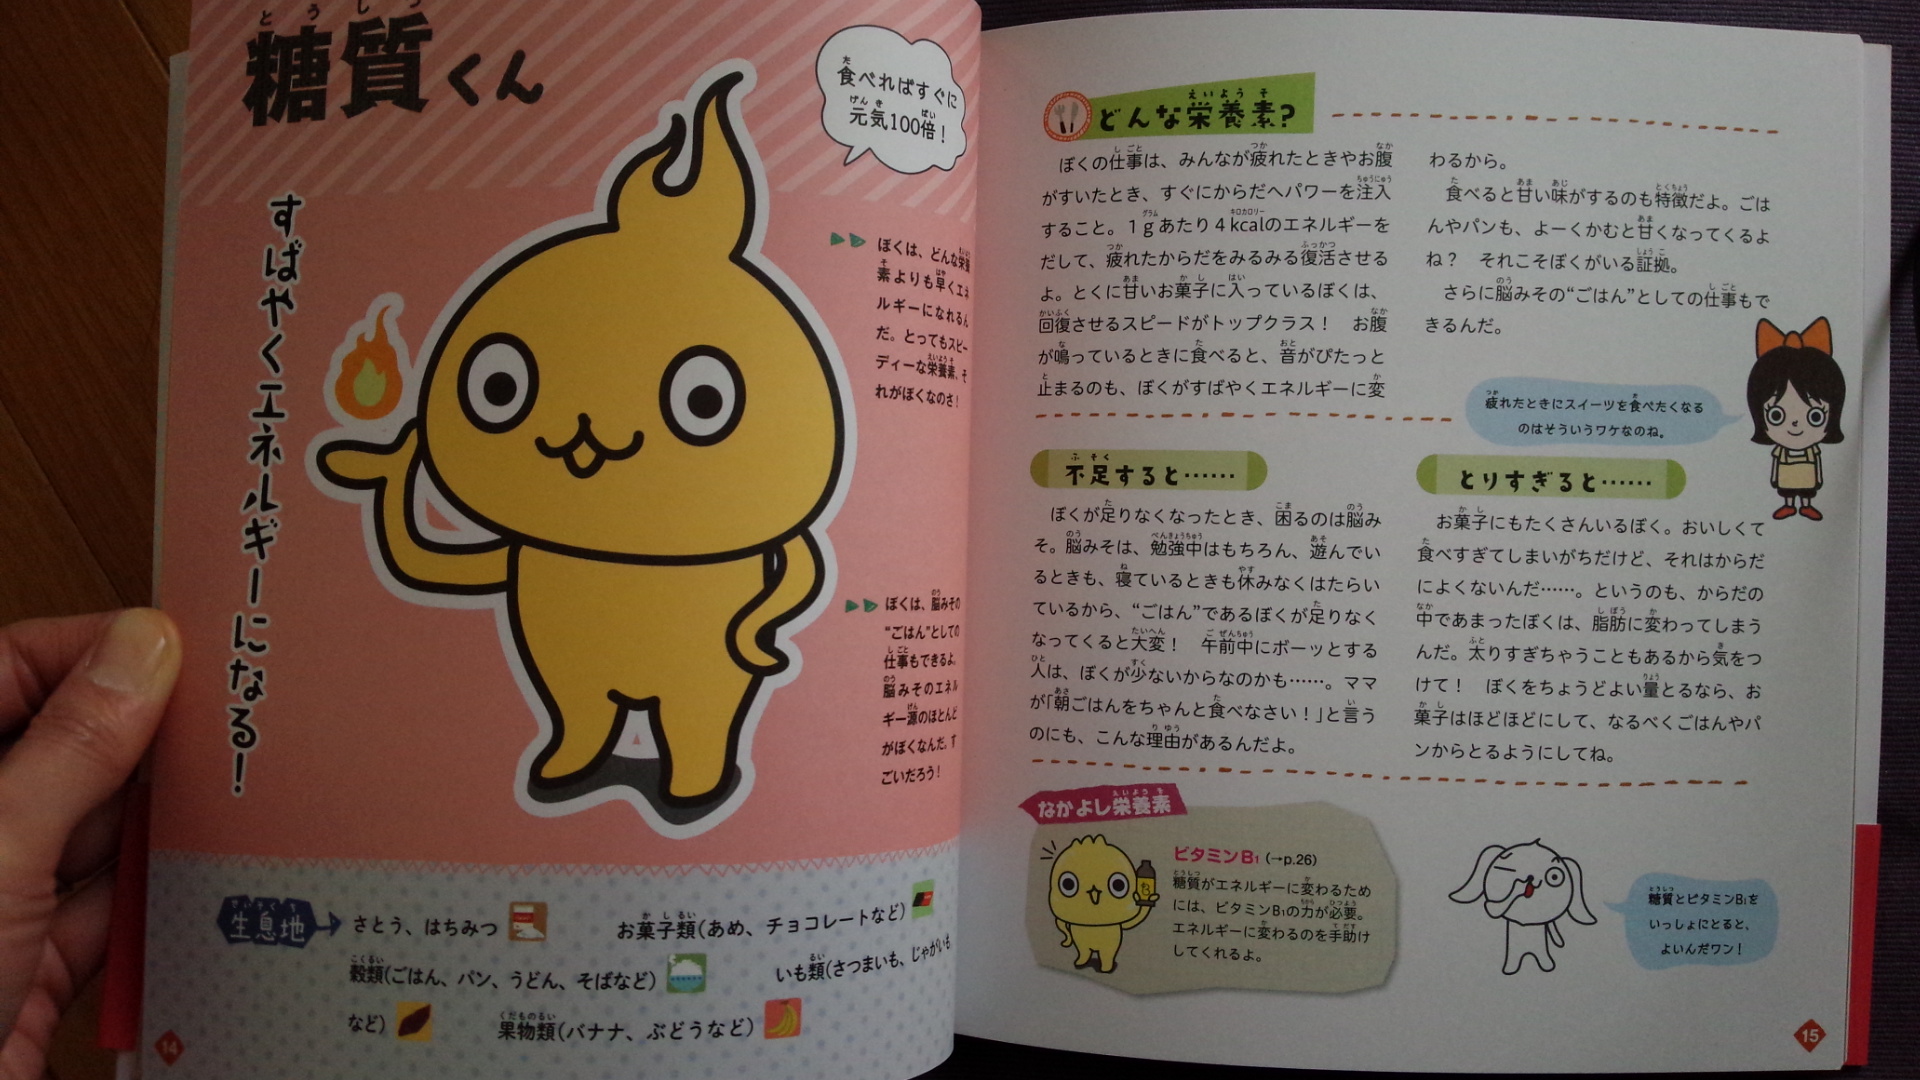 糖質くん
食べればすぐに
元気100倍！
すばやくエネルギーになる！
ぼくは、どんな栄養
素よりも早くエネ
ルギーになれるん
だ。とってもスピー
ディーな栄養素、そ
れがぼくなのさ！
ぼくは、脳みその
“ごはん”としての
仕事もできるよ。
脳みそのエネル
ギー源のほとんど
がぼくなんだ。す
ごいだろう！
生息地
さとう、はちみつ
お菓子類(あめ、チョコレートなど)
穀類(ごはん、パン、うどん、そばなど)
いも類(さつまいも、じゃがいも
など)
果物類(バナナ、ぶどうなど)
14
どんな栄養素？
ぼくの仕事は、みんなが疲れたときやお腹
がすいたとき、すぐにからだへパワーを注入
すること。1gあたり4kcalのエネルギーを
だして、疲れたからだをみるみる復活させる
よ。とくに甘いお菓子に入っているぼくは、
回復させるスピードがトップクラス！　お腹
が鳴っているときに食べると、音がぴたっと
止まるのも、ぼくがすばやくエネルギーに変
わるから。
食べると甘い味がするのも特徴だよ。ごは
んやパンも、よーくかむと甘くなってくるよ
ね？　それこそぼくがいる証拠。
さらに脳みその“ごはん”としての仕事もで
きるんだ。
疲れたときにスイーツを食べたくなる
のはそういうワケなのね。
不足すると……
ぼくが足りなくなったとき、困るのは脳み
そ。脳みそは、勉強中はもちろん、遊んでい
るときも、寝ているときも休みなくはたらい
ているから、“ごはん”であるぼくが足りなく
なってくると大変！　午前中にボーッとする
人は、ぼくが少ないからなのかも……。ママ
が「朝ごはんをちゃんと食べなさい！」と言う
のにも、こんな理由があるんだよ。
とりすぎると……
お菓子にもたくさんいるぼく。おいしくて
食べすぎてしまいがちだけど、それはからだ
によくないんだ……。というのも、からだの
中であまったぼくは、脂肪に変わってしまう
んだ。太りすぎちゃうこともあるから気をつ
けて！　ぼくをちょうどよい量とるなら、お
菓子はほどほどにして、なるべくごはんやパ
ンからとるようにしてね。
なかよし栄養素
ビタミンB1(→p.26)
糖質がエネルギーに変わるため
には、ビタミンB1の力が必要。
エネルギーに変わるのを手助け
してくれるよ。
糖質とビタミンB1を
いっしょにとると、
よいんだワン！
15